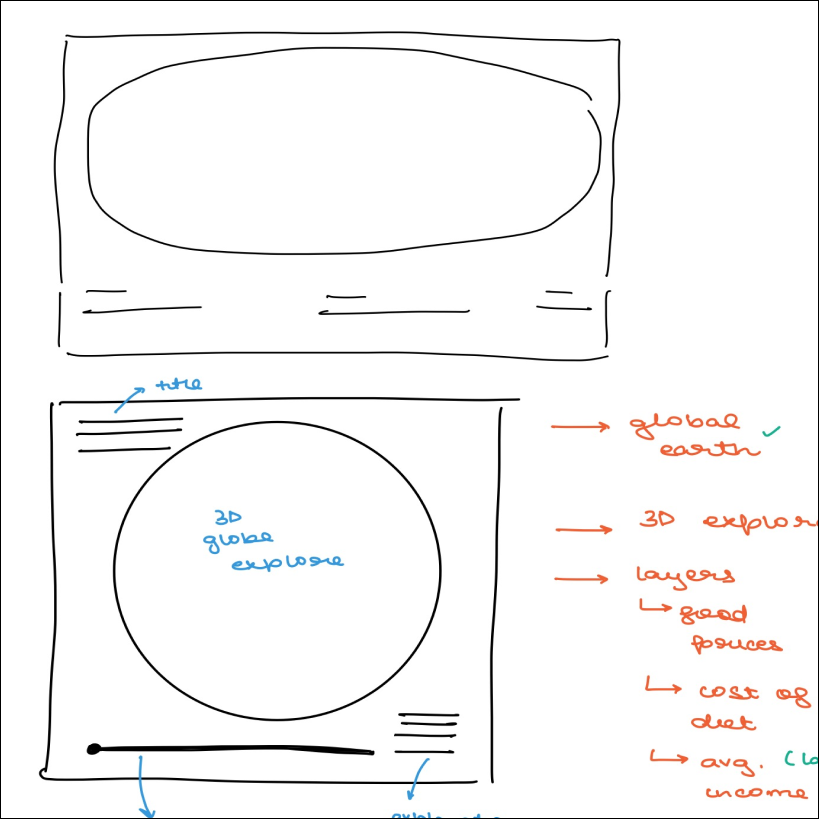 title
3D
globe
explore
global
earth
3D explor
layers
food
prices
cost of
diet
avg.
income